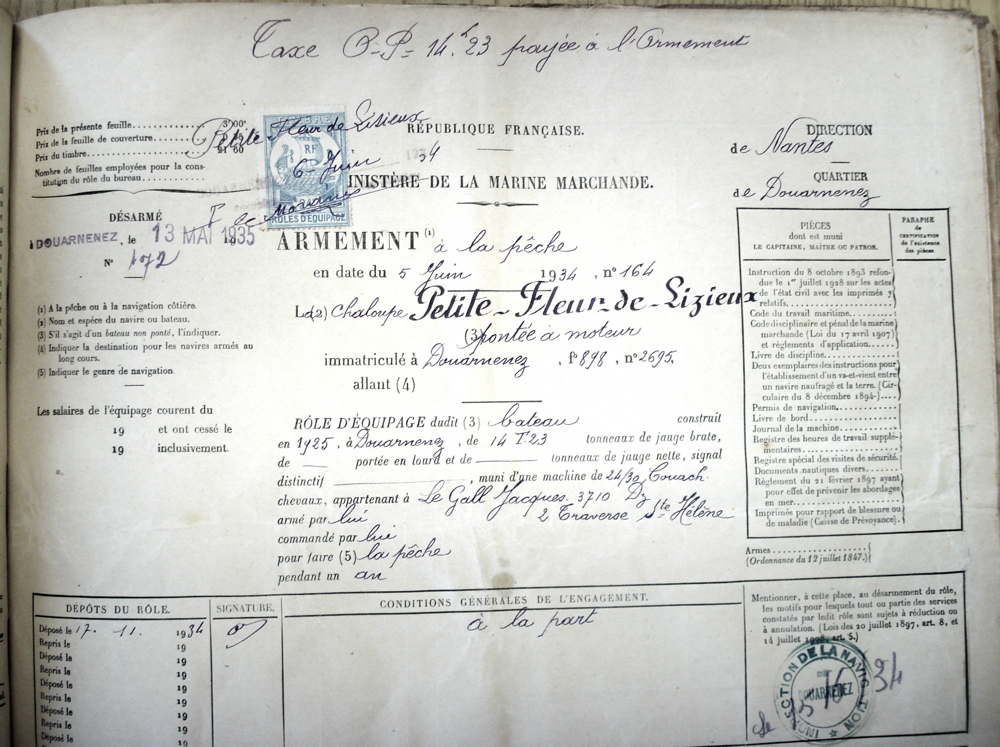 Taxe O-P- 14.23 payée à l'Armement
Prix de la présente feuille
3f00c
Prix de la feuille de couverture
Prix du timbre
21 60
Nombre de feuilles employées pour la cons-
titution du rôle du bureau
TIMBRE
RF
RÔLES D'ÉQUIPAGE
Petite Fleur de Lizieux
6 Juin 34
RÉPUBLIQUE FRANÇAISE.
MINISTÈRE DE LA MARINE MARCHANDE.
DIRECTION
de Nantes
QUARTIER
de Douarnenez
DÉSARMÉ
à DOUARNENEZ, le 13 MAI 1935
N° 172
(1) A la pêche ou à la navigation côtière.
(2) Nom et espèce du navire ou bateau.
(3) S'il s'agit d'un bateau non ponté, l'indiquer.
(4) Indiquer la destination pour les navires armés au
long cours.
(5) Indiquer le genre de navigation.
Les salaires de l'équipage courent du
19 et ont cessé le
19 inclusivement.
ARMEMENT (1) à la pêche
en date du 5 Juin 1934, n° 164
(2) Chaloupe Petite-Fleur-de-Lizieux
(3) pontée à moteur
immatriculé à Douarnenez, f° 898, n° 2695.
allant (4)
RÔLE D'ÉQUIPAGE dudit (3) bateau construit
en 1925, à Douarnenez, de 14 Tx 23 tonneaux de jauge brute,
de — portée en lourd et de — tonneaux de jauge nette, signal
distinctif , muni d'une machine de 24/30 Couach
chevaux, appartenant à Le Gall Jacques. 3710 Dz
2 Traverse Ste Hélène
armé par lui
commandé par lui
pour faire (5) la pêche
pendant un an
PIÈCES
dont est muni
LE CAPITAINE, MAÎTRE OU PATRON.
PARAPHE
de
CERTIFICATION
de l'existence
des pièces.
Instruction du 8 octobre 1893 refon-
due le 1er juillet 1928 sur les actes
de l'état civil avec les imprimés y
relatifs.
Code du travail maritime
Code disciplinaire et pénal de la marine
marchande (Loi du 17 avril 1907)
et règlements d'application
Livre de discipline
Deux exemplaires des instructions pour
l'établissement d'un va-et-vient entre
un navire naufragé et la terre. (Cir-
culaire du 8 décembre 1894)
Permis de navigation
Livre de bord
Journal de la machine
Registre des heures de travail supplé-
mentaires
Registre spécial des visites de sécurité.
Documents nautiques divers
Règlement du 21 février 1897 ayant
pour effet de prévenir les abordages
en mer
Imprimés pour rapport de blessure ou
de maladie (Caisse de Prévoyance).
Armes
(Ordonnance du 12 juillet 1847.)
DÉPÔTS DU RÔLE.
SIGNATURE.
CONDITIONS GÉNÉRALES DE L'ENGAGEMENT.
à la part
Déposé le 17. 11. 1934
Repris le 19
Déposé le 19
Repris le 19
Déposé le 19
Repris le 19
Déposé le 19
Repris le 19
Déposé le 19
Mentionner, à cette place, au désarmement du rôle,
les motifs pour lesquels tout ou partie des services
constatés par ledit rôle sont sujets à réduction ou
à annulation. (Lois des 20 juillet 1897, art. 8, et
14 juillet 1908, art. 5.)
INSPECTION DE LA NAVIGATION
DE
DOUARNENEZ
Le 5 6 34